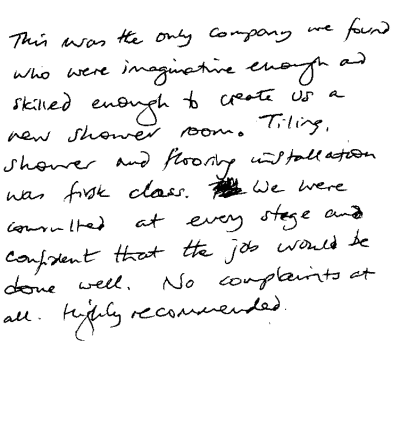 This was the only company we found
who were imaginative enough and
skilled enough to create us a
new shower room. Tiling,
shower and flooring installation
was first class. We were
consulted at every stage and
confident that the job would be
done well. No complaints at
all. Highly recommended.